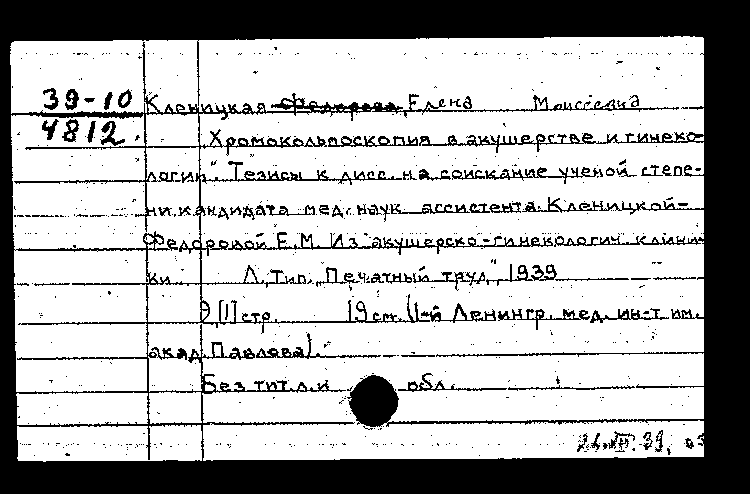 39-10
4812.
Кленицкая Федорова, Елена Моисеевна
Хромокольпоскопия в акушерстве и гинеко-
логии". Тезисы к дисс. на соискание ученой степе-
ни кандидата мед. наук ассистента Кленицкой-
Федоровой Е.М. Из акушерско-гинекологич. клини-
ки. Л., Тип. "Печатный труд", 1939
[1] стр. 19 см. (1-й Ленингр. мед. ин-т им.
акад. Павлова).
Без тит. л. и обл.
39,